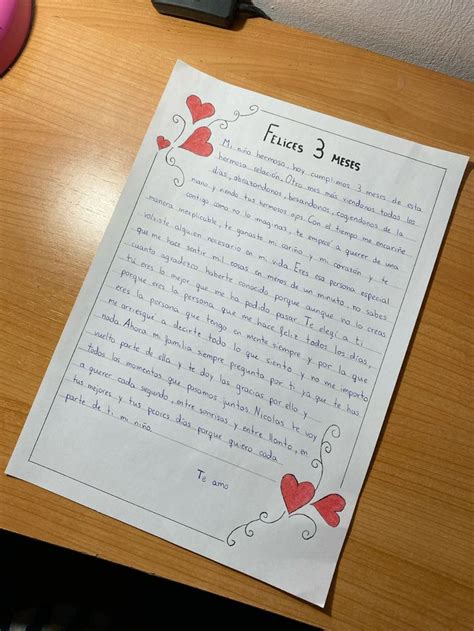 FELICES 3 MESES
Mi niño hermoso, hoy cumplimos 3 meses de esta
hermosa relación. Otro mes más viendonos todos los
días, abrazandonos, besandonos, cogendonos de la
mano y viendo tus hermosos ojos. Con el tiempo me encariñe
contigo como no lo imaginas, te empecé a querer de una
manera inexplicable, te ganaste mi cariño y mi corazón y te
volviste alguien necesario en mi vida. Eres esa persona especial
que me hace sentir mil cosas en menos de un minuto, no sabes
cuanto agradezco haberte conocido porque aunque no lo creas
tú eres lo mejor que me ha podido pasar. Te elegí a ti
porque eres la persona que me hace feliz todos los días,
eres la persona que tengo en mente siempre y por la que
me arriesgué a decirte todo lo que siento y no me importo
nada. Ahora mi familia siempre pregunta por ti, ya que te has
vuelto parte de ella y te doy las gracias por ello y
todos los momentos que pasamos juntos. Nicolas te voy
a querer cada segundo, entre sonrisas y entre llanto, en
tus mejores y tus peores días porque quiero cada
parte de ti mi niño.
Te amo